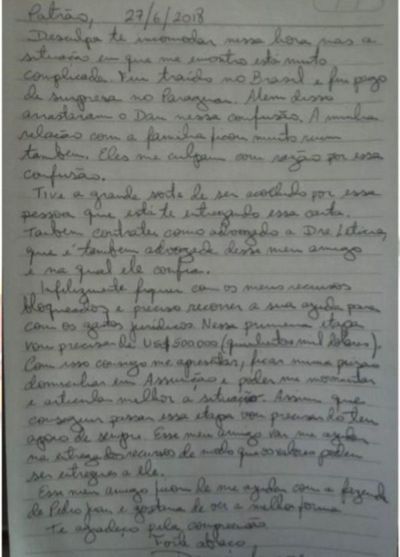 Patrão, 27/6/2018
Desculpa te incomodar nessa hora mas a
situação em que me encontro está muito
complicada. Fui traído no Brasil e fui pego
de surpresa no Paraguai. Alem disso
arrastaram o Dan nessa confusão. A minha
relação com a familia ficou muito ruim
tambem. Eles me culpam com razão por essa
confusão.
Tive a grande sorte de ser acolhido por essa
pessoa que está te entregando essa carta.
Tambem contratei como advogado a Dra Leticia,
que é tambem advogada desse meu amigo
e na qual ele confia.
Infelizmente fiquei com os meus recursos
bloqueados e preciso recorrer a sua ajuda para
com os gastos jurídicos. Nessa primeira etapa
vou precisar de US$ 500.000 (quinhentos mil dolares).
Com isso consigo me apresentar, ficar numa prisão
domiciliar em Assunción e poder me movimentar
e articular melhor a situação. Assim que
conseguir passar essa etapa vou precisar do teu
apoio de sempre. Esse meu amigo vai me ajudar
na entrega dos recursos de modo que os valores podem
ser entregues a ele.
Esse meu amigo ficou de me ajudar com a fazenda
de Pedro Juan e gostaria de ver a melhor forma.
Te agradeço pela compreensão
Forte abraço,